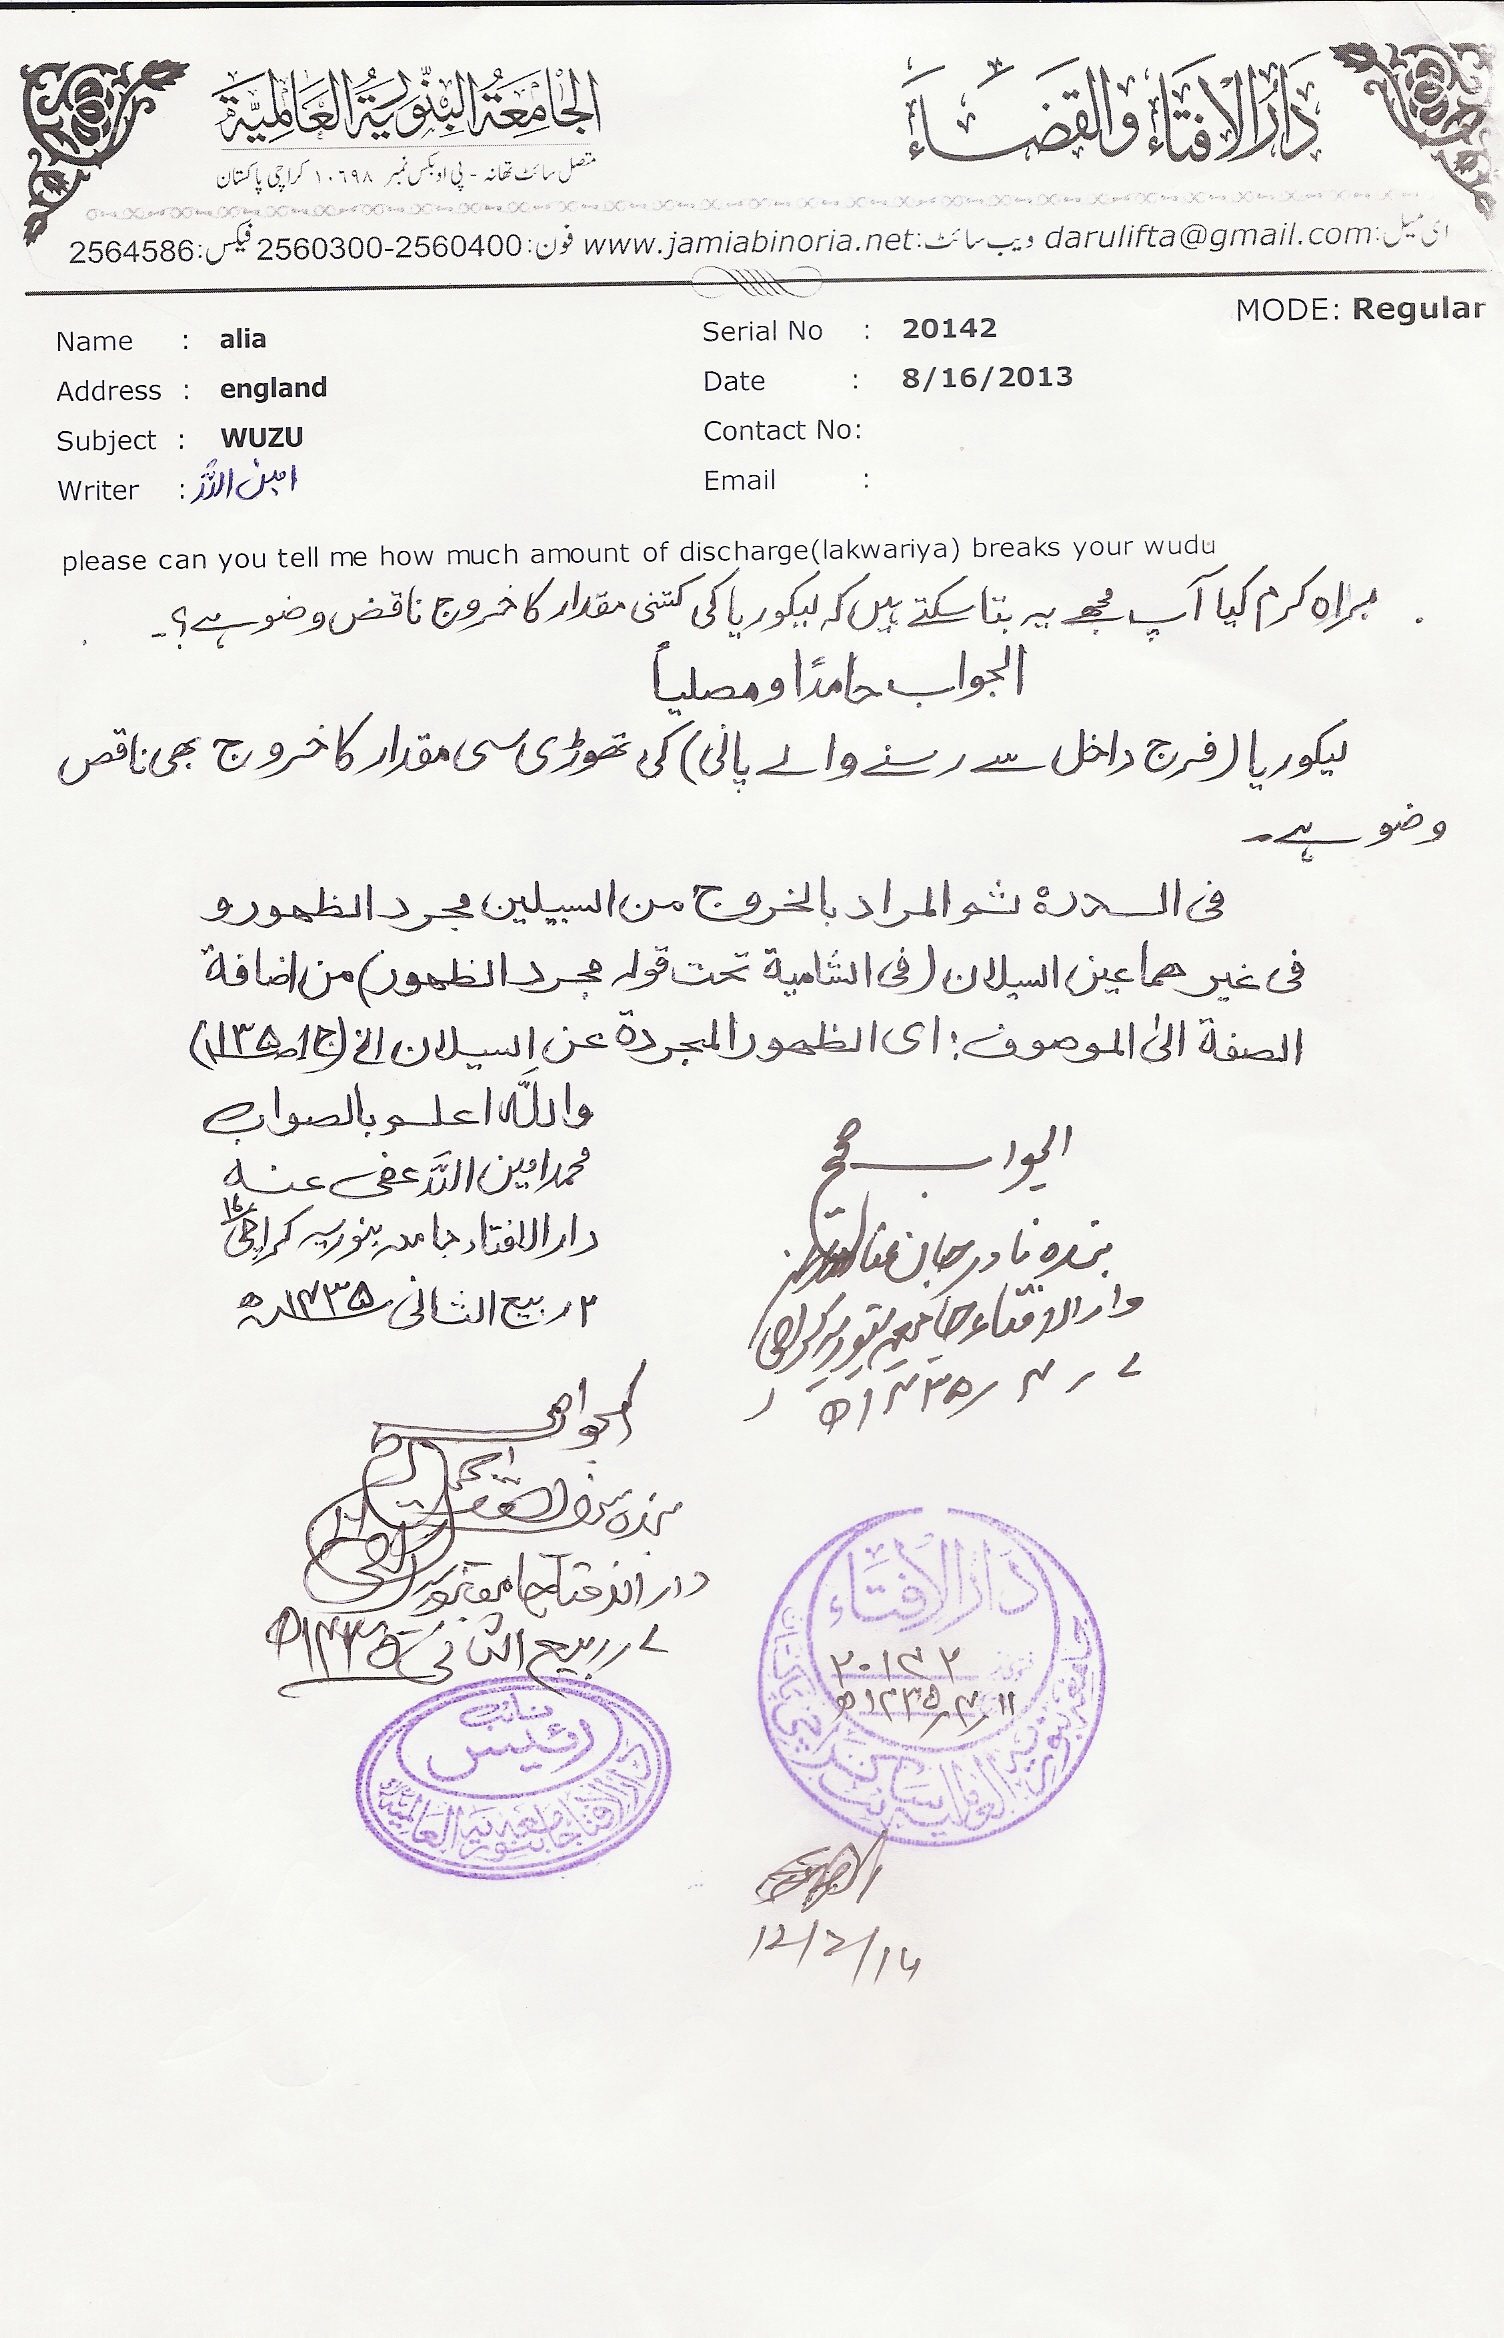 دَارُالافتَاء والقضَاء
الجَامِعَةُ البنّوريَّة العَالميَّة
متصل سائٹ تھانہ - پی او بکس نمبر ۱۰۶۹۸ کراچی پاکستان
ای میل:darulifta@gmail.com ویب سائٹ:www.jamiabinoria.net فون:2560300-2560400 فیکس:2564586
MODE: Regular
Name : alia
Serial No : 20142
Address : england
Date : 8/16/2013
Subject : WUZU
Contact No:
Writer : امین اللہ
Email :
please can you tell me how much amount of discharge(lakwariya) breaks your wudu
براہ کرم کیا آپ مجھے یہ بتا سکتے ہیں کہ لیکوریا کی کتنی مقدار کا خروج ناقض وضو ہے؟۔
الجواب حامدًا ومصلیاً
لیکوریا (فرج داخل سے رسنے والے پانی) کی تھوڑی سی مقدار کا خروج بھی ناقص
وضو ہے۔
فی الدرۃ ثم المراد بالخروج من السبیلین مجرد الظھور و
فی غیرھما عین السیلان (فی الشامیة تحت قولہ مجرد الظھور) من اضافة
الصفة الیٰ الموصوف: ای الظھور المجردة عن السیلان الخ (ج۱ ص۱۳۵)
واللّٰہ اعلم بالصواب
محمد امین اللہ عفی عنہ
دار الافتاء جامعہ بنوریہ کراچی ۱۶
۲ ربیع الثانی ۱۴۳۵ھ
الجواب صحیح
بندہ نادر جان عفا
دار الافتاء جامعہ بنوریہ کراچی
۷ ر ۴ ر ۱۴۳۵ھ
الجواب صحیح
بندہ
دار الافتاء جامعہ بنوریہ
۷ ربیع الثانی ۱۴۳۵ھ
دَارُالافتَاء
۲۰۱۴۲
۱۱ ر ۴ ر ۱۴۳۵ھ
نائب
رئیس
دارالافتاء جامعہ بنوریہ العالمیہ
12/2/14